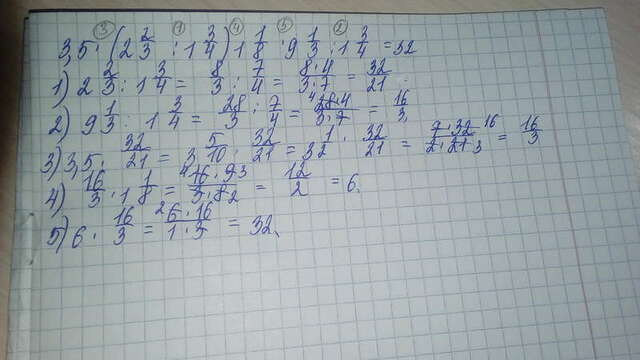 ③ ① ④ ⑤ ②
3,5 · (2 2/3 : 1 3/4) 1 1/8 : 9 1/3 : 1 3/4 = 32
1) 2 2/3 : 1 3/4 = 8/3 : 7/4 = 8·4/3·7 = 32/21
2) 9 1/3 : 1 3/4 = 28/3 : 7/4 = 4 28·4/3·7 = 16/3
3) 3,5 · 32/21 = 3 5/10 · 32/21 = 3 1/2 · 32/21 = 7·32 16/2·21 3 = 16/3
4) 16/3 · 1 1/8 = 4 16·9 3/3·8 2 = 12/2 = 6.
5) 6 · 16/3 = 2 6·16/1·3 = 32.